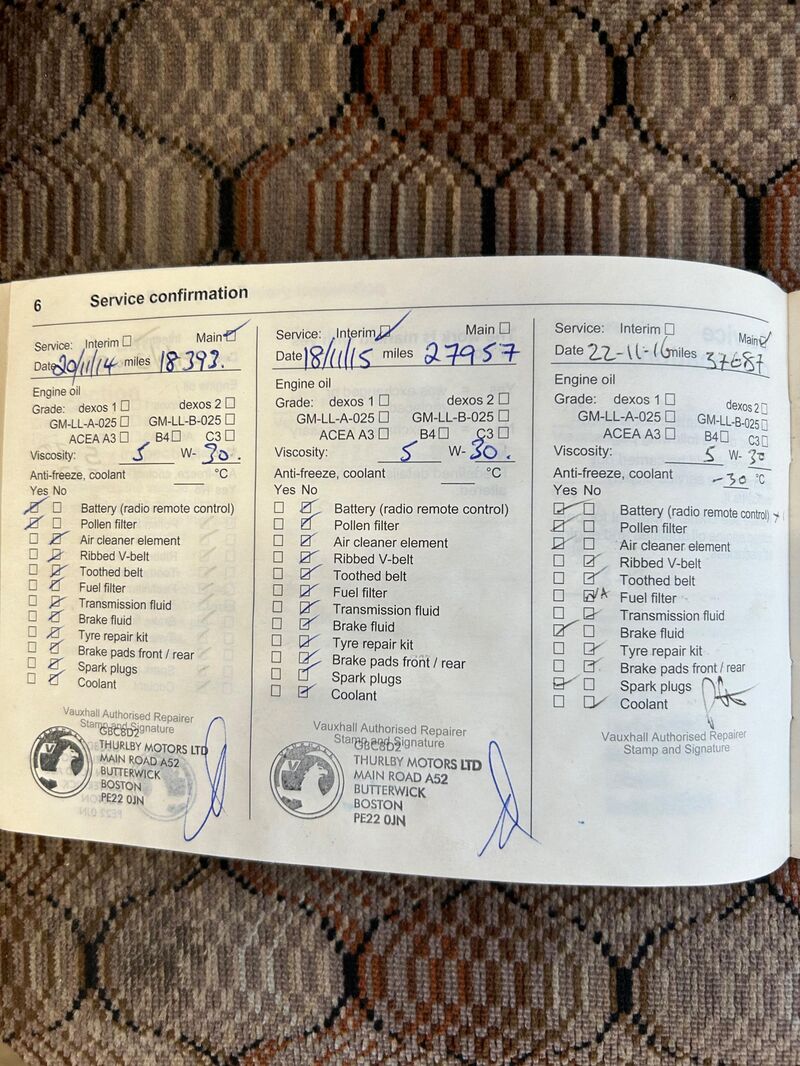 6 Service confirmation
Service: Interim Main
Date 20/11/14 miles 18393.
Engine oil
Grade: dexos 1 dexos 2
GM-LL-A-025 GM-LL-B-025
ACEA A3 B4 C3
Viscosity: 5 W- 30.
Anti-freeze, coolant °C
Yes No
Battery (radio remote control)
Pollen filter
Air cleaner element
Ribbed V-belt
Toothed belt
Fuel filter
Transmission fluid
Brake fluid
Tyre repair kit
Brake pads front / rear
Spark plugs
Coolant
Vauxhall Authorised Repairer
Stamp and Signature
GBC8D2
THURLBY MOTORS LTD
MAIN ROAD A52
BUTTERWICK
BOSTON
PE22 0JN
Service: Interim Main
Date 18/11/15 miles 27957
Engine oil
Grade: dexos 1 dexos 2
GM-LL-A-025 GM-LL-B-025
ACEA A3 B4 C3
Viscosity: 5 W- 30.
Anti-freeze, coolant °C
Yes No
Battery (radio remote control)
Pollen filter
Air cleaner element
Ribbed V-belt
Toothed belt
Fuel filter
Transmission fluid
Brake fluid
Tyre repair kit
Brake pads front / rear
Spark plugs
Coolant
Vauxhall Authorised Repairer
Stamp and Signature
GBC8D2
THURLBY MOTORS LTD
MAIN ROAD A52
BUTTERWICK
BOSTON
PE22 0JN
Service: Interim Main
Date 22-11-16 miles 37687
Engine oil
Grade: dexos 1 dexos 2
GM-LL-A-025 GM-LL-B-025
ACEA A3 B4 C3
Viscosity: 5 W- 30
Anti-freeze, coolant -30 °C
Yes No
Battery (radio remote control)
Pollen filter
Air cleaner element
Ribbed V-belt
Toothed belt
N/A Fuel filter
Transmission fluid
Brake fluid
Tyre repair kit
Brake pads front / rear
Spark plugs
Coolant
Vauxhall Authorised Repairer
Stamp and Signature